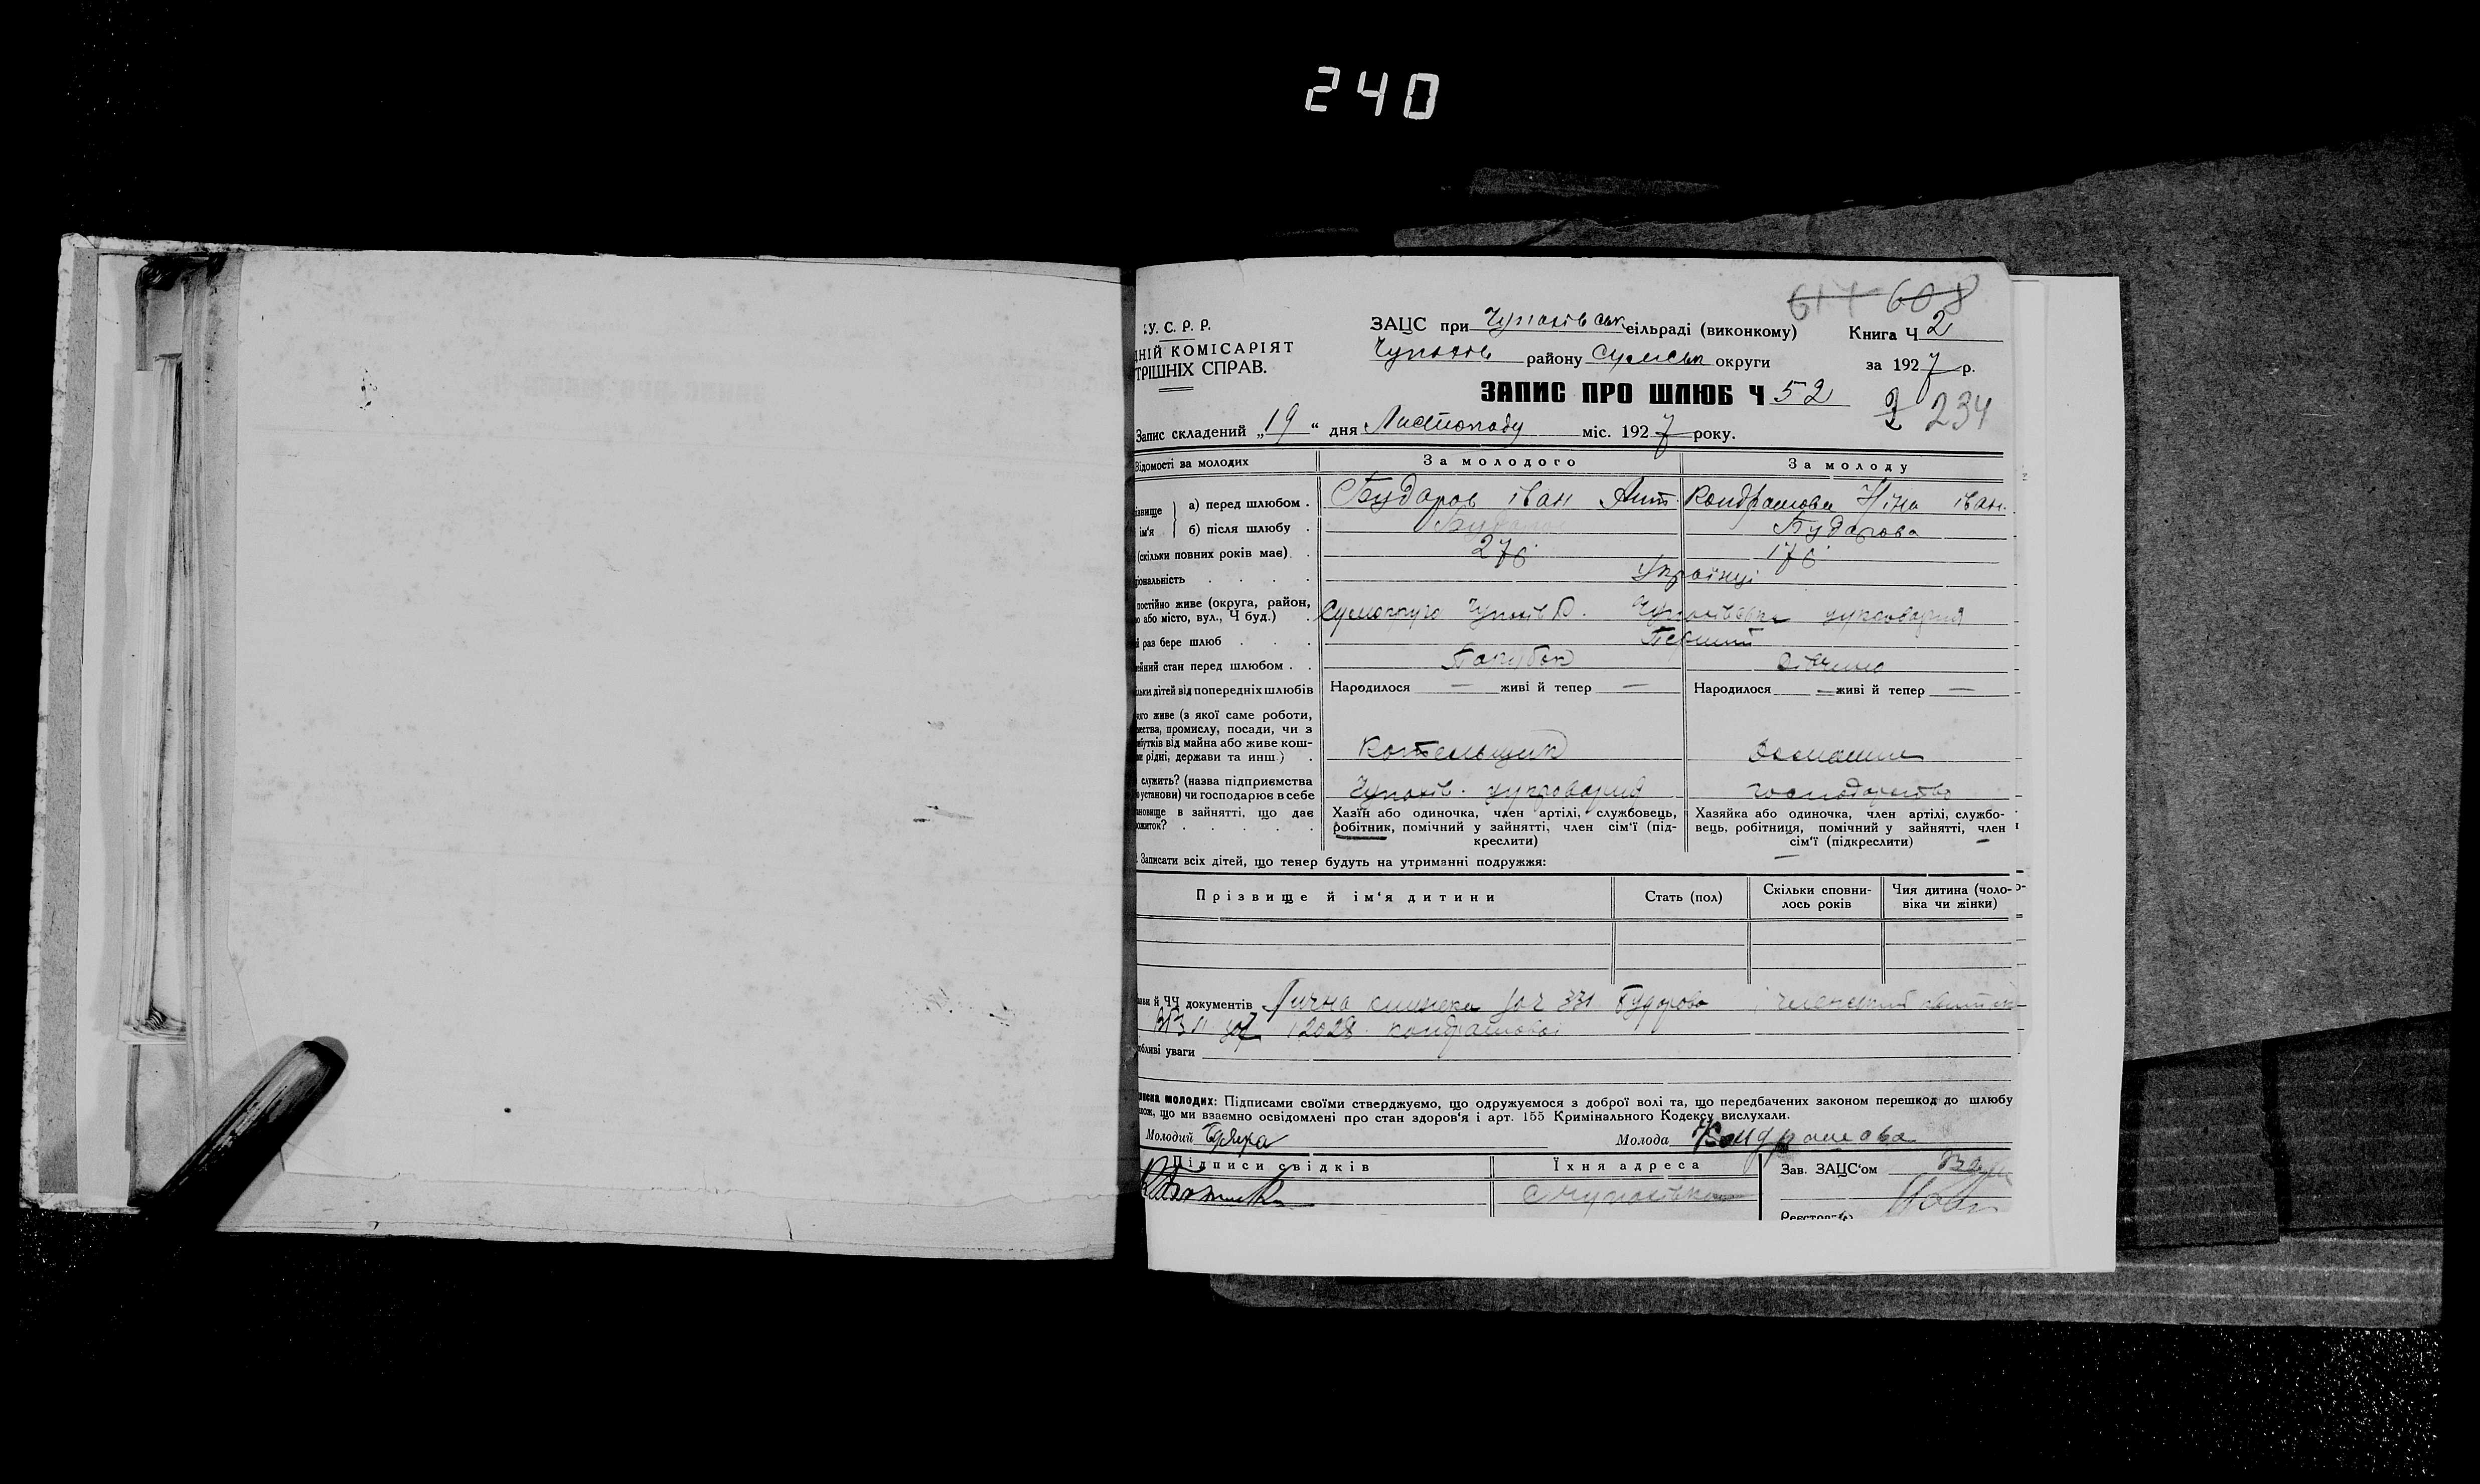 240
614 608
У. С. Р. Р.
НІЙ КОМІСАРІЯТ
ТРІШНІХ СПРАВ.
ЗАЦС при Чупахівськ сільраді (виконкому) Книга Ч 2
Чупахів району Сумськ округи за 1927 р.
ЗАПИС ПРО ШЛЮБ Ч 52
234
Запис складений „19“ дня Листопаду міс. 1927 року.
Відомості за молодих За молодого За молоду
ізвище ім'я а) перед шлюбом . Бударов іван Ант. Кондрашова Ніна іван.
б) після шлюбу . Бударов Бударова
(скільки повних років має) . 27 17
іональність . . . . Українці
постійно живе (округа, район,
або місто, вул., Ч буд.) . Сумокруги Чупахів Р. Чупахівська цукроварня
й раз бере шлюб . . . Перший
ейний стан перед шлюбом . . Парубок дівчина
льки дітей від попередніх шлюбів Народилося — живі й тепер — Народилося — живі й тепер —
чого живе (з якої саме роботи,
ества, промислу, посади, чи з
бутків від майна або живе кош-
и рідні, держави та инш.) . Котельщик домашнє
служить? (назва підприємства
о установи) чи господарює в себе Чупахів. цукроварня господарство
ановище в зайнятті, що дає
ожиток? . . . . . Хазїн або одиночка, член артілі, службовець,
робітник, помічний у зайнятті, член сім'ї (під-
креслити)
Хазяйка або одиночка, член артілі, службо-
вець, робітниця, помічний у зайнятті, член
сім'ї (підкреслити)
Записати всіх дітей, що тепер будуть на утриманні подружжя:
Прізвище й ім'я дитини Стать (пол) Скільки сповни-
лось років Чия дитина (чоло-
віка чи жінки)
ви й ЧЧ документів Лична книжка за ч 331 Бударова і членський
12028 кондрашової
обливі уваги
писка молодих: Підписами своїми стверджуємо, що одружуємося з доброї волі та, що передбачених законом перешкод до шлюбу
кож, що ми взаємно освідомлені про стан здоров'я і арт. 155 Кримінального Кодексу вислухали.
Молодий Молода Кондрашова
Підписи свідків Їхня адреса Зав. ЗАЦС'ом
с Чупахівка